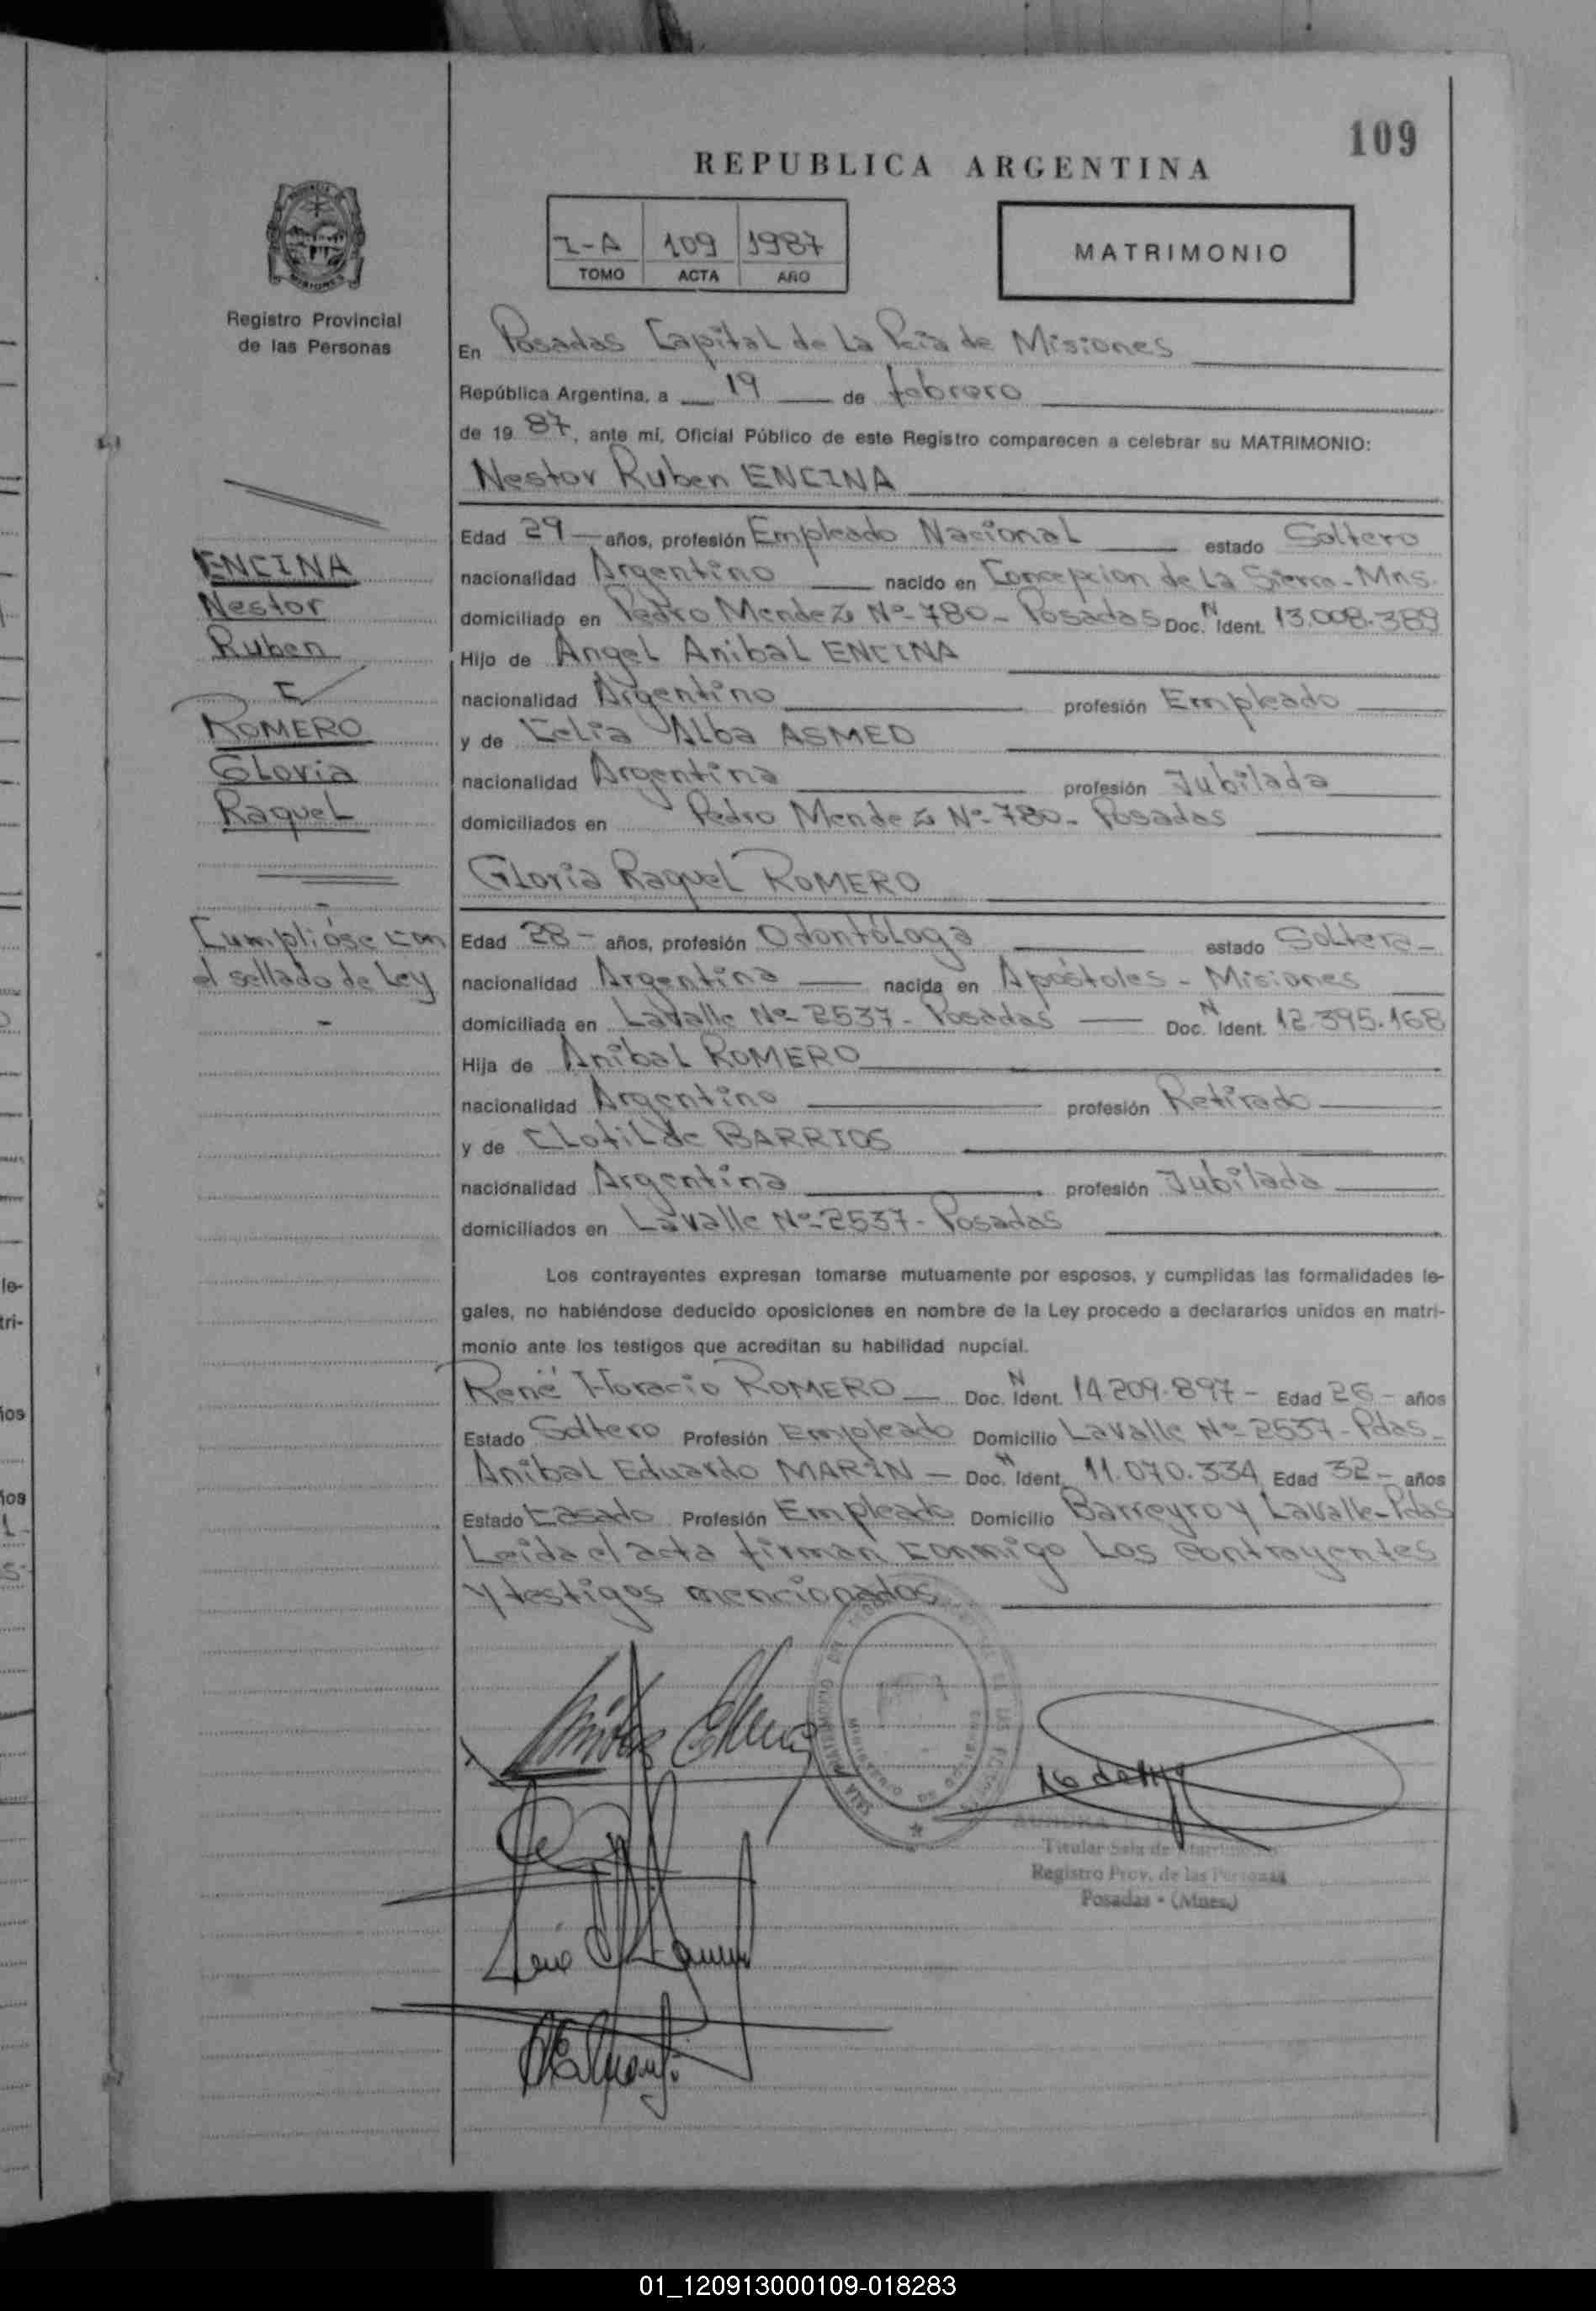 109
REPUBLICA ARGENTINA
I-A 109 1987
TOMO ACTA AÑO
MATRIMONIO
Registro Provincial
de las Personas
En Posadas Capital de La Pcia de Misiones
República Argentina, a 19 de febrero
de 19 87, ante mí, Oficial Público de este Registro comparecen a celebrar su MATRIMONIO:
Nestor Ruben ENCINA
Edad 29 años, profesión Empleado Nacional estado Soltero
nacionalidad Argentino nacido en Concepcion de La Sierra - Mns.
domiciliado en Pedro Mendez Nº 780 - Posadas Doc. N Ident. 13.008.389
Hijo de Angel Anibal ENCINA
nacionalidad Argentino profesión Empleado
y de Celia Alba ASMED
nacionalidad Argentina profesión Jubilada
domiciliados en Pedro Mendez Nº 780 - Posadas
ENCINA
Nestor
Ruben
ROMERO
Gloria
Raquel
Cumplióse con
el sellado de Ley
Gloria Raquel ROMERO
Edad 28 - años, profesión Odontóloga estado Soltera -
nacionalidad Argentina nacida en Apóstoles - Misiones
domiciliada en Lavalle Nº 2537 - Posadas Doc. N Ident. 12.395.168
Hija de Anibal ROMERO
nacionalidad Argentino profesión Retirado
y de Clotilde BARRIOS
nacionalidad Argentina profesión Jubilada
domiciliados en Lavalle Nº 2537 - Posadas
Los contrayentes expresan tomarse mutuamente por esposos, y cumplidas las formalidades le-
gales, no habiéndose deducido oposiciones en nombre de la Ley procedo a declararlos unidos en matri-
monio ante los testigos que acreditan su habilidad nupcial.
René Horacio ROMERO Doc. N Ident. 14.209.897 - Edad 26 - años
Estado Soltero Profesión Empleado Domicilio Lavalle Nº 2537 - Pdas -
Anibal Eduardo MARIN - Doc. N Ident. 11.070.334 Edad 32 - años
Estado Casado Profesión Empleado Domicilio Barreyro y Lavalle - Pdas
Leida el acta firman conmigo Los contrayentes
y testigos mencionados
Titular Sala de
Registro Prov. de las Personas
Posadas - (Mnes.)
01_120913000109-018283